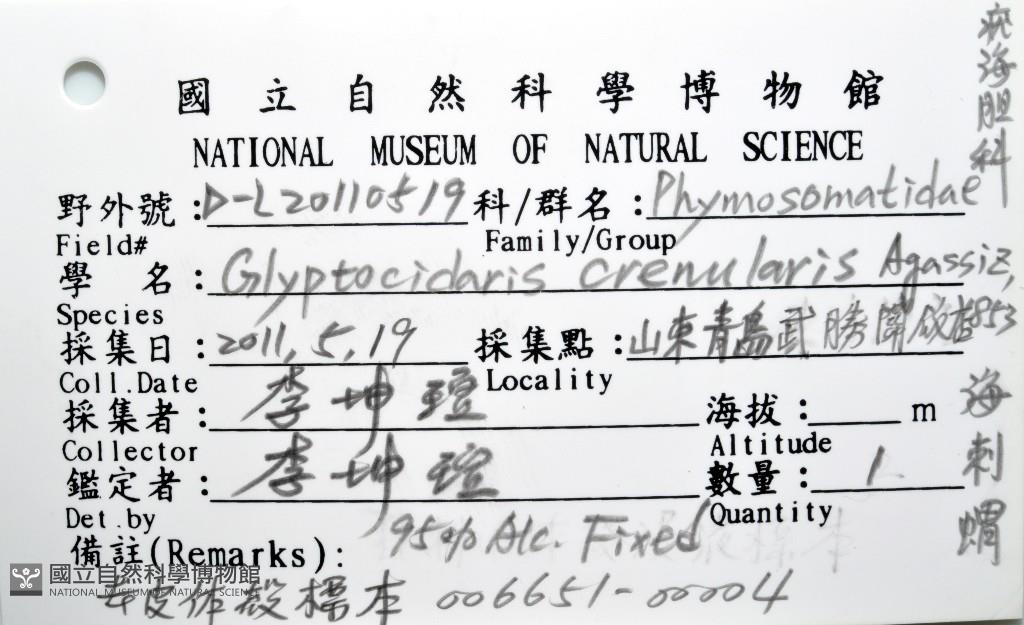 國立自然科學博物館
NATIONAL MUSEUM OF NATURAL SCIENCE
疣海胆科
野外號:D-L20110519 科/群名:Phymosomatidae
Field# Family/Group
學 名:Glyptocidaris crenularis Agassiz, 1853
Species
採集日:2011.5.19 採集點:山東青島武勝関
Coll.Date Locality
採集者:李坤瑄 海拔: m
Collector Altitude
鑑定者:李坤瑄 數量:1
Det.by Quantity
海刺蝟
備註(Remarks): 95% Alc. Fixed
皮作殼標本 006651-00004
國立自然科學博物館
NATIONAL MUSEUM OF NATURAL SCIENCE